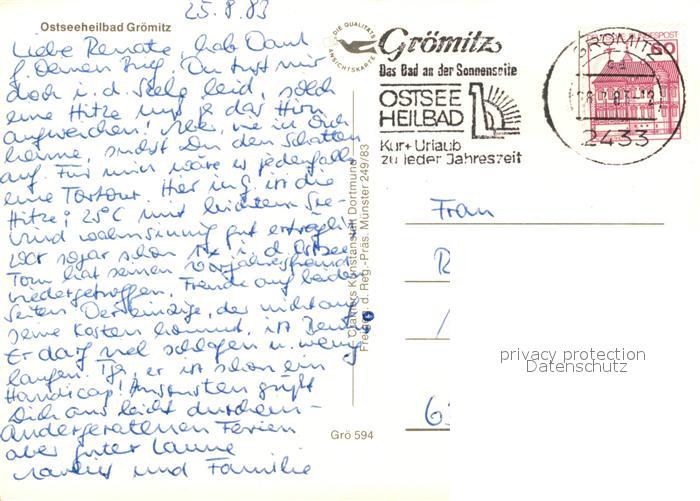 25.8.83
Ostseeheilbad Grömitz
Liebe Renate, hab Dank
f. Deinen Brief. Du tust mir
doch i. d. Seele leid, solch
eine Hitze muß ja das Hirn
aufweichen! Aber, wie ich Dich
kenne, suchst Du den Schatten
auf. Für mich wäre es jedenfalls
eine Tortour. Hier ist die
Hitze: 25°C mit leichtem See-
wind wahnsinnig gut erträglich
war sogar schon in d. Ostsee
Tom hat seinen Vorjahresfreund
wiedergetroffen. Freude auf beiden
Seiten. Der einzige, der nicht auf
seine Kosten kommt, ist
Er darf viel schlafen u. wenig
laufen. Tja, er ist schon ein
Handicap! Ansonsten grüßt
Dich aus leicht durchein-
andergeratenen Ferien
aber guter Laune
und Familie
DIE QUALITÄTS
ANSICHTSKARTE
Grömitz
Das Bad an der Sonnenseite
OSTSEE
HEILBAD
Kur + Urlaub
zu jeder Jahreszeit
GRÖMITZ
2433
60
Cramers Kunstanstalt Dortmund
d. Reg.-Präs. Münster 249/83
Frau
R
privacy protection
Datenschutz
Grö 594